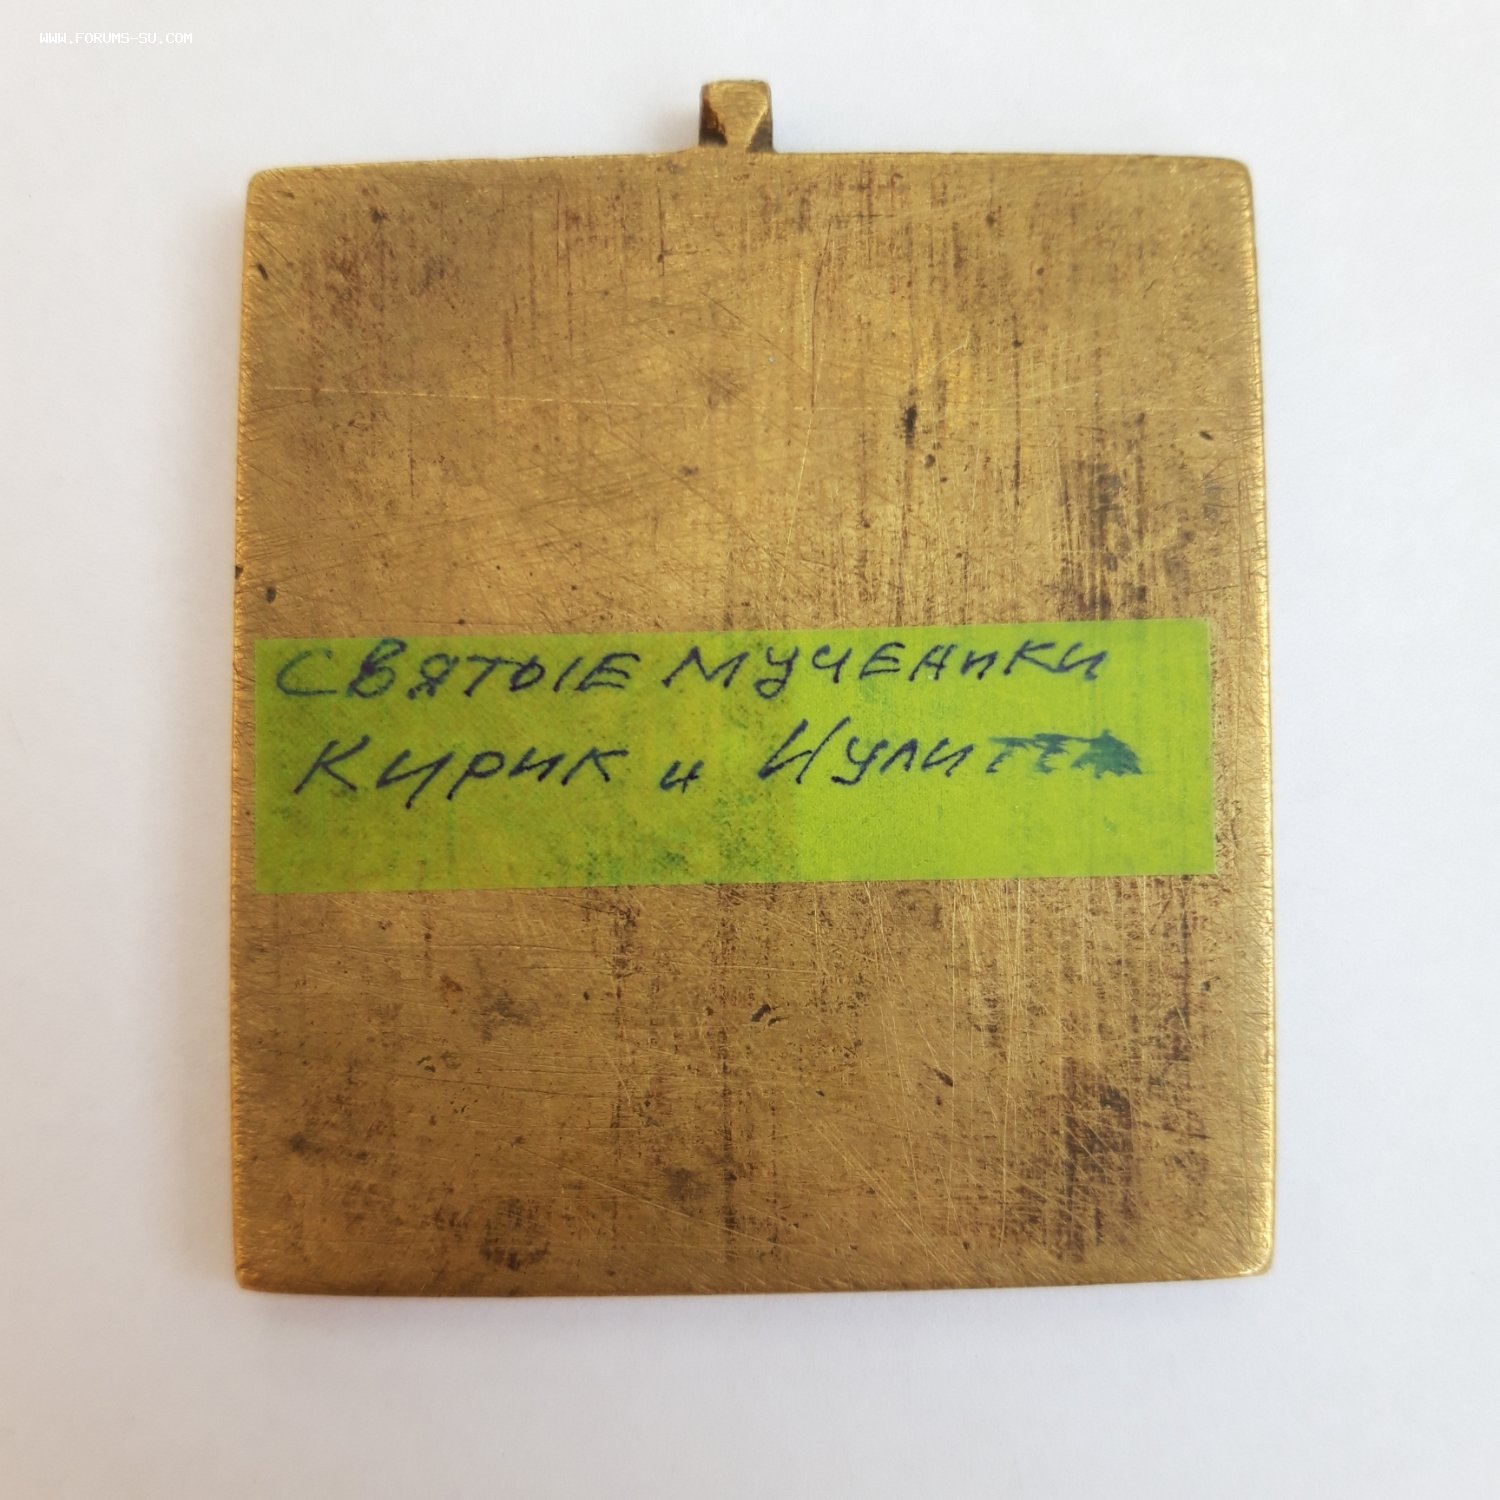 WWW.FORUMS-SU.COM
СВЯТЫЕ МУЧЕНИКИ
КИРИК и